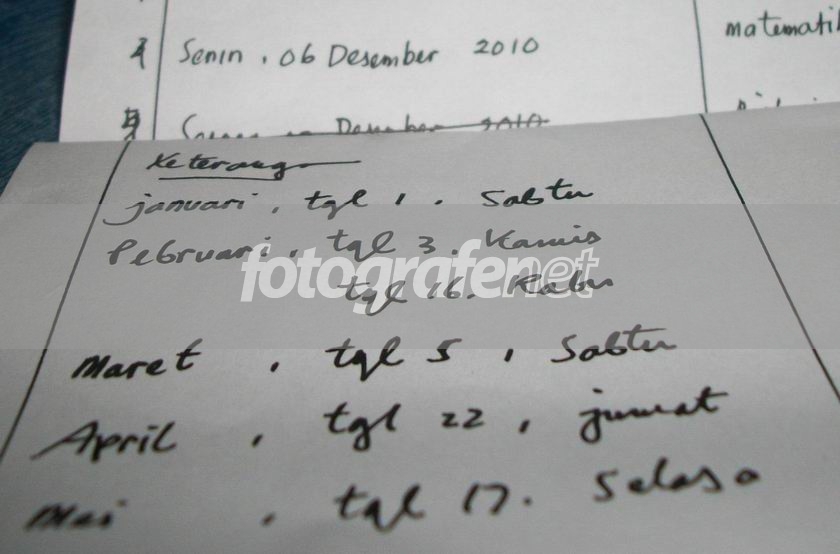 4 Senin, 06 Desember 2010
matematik
5 Desember 2010
Keterangan
januari, tgl 1. Sabtu
Pebruari, tgl 3. Kamis
fotografenet
tgl 16. Rabu
Maret, tgl 5, Sabtu
April, tgl 22, jumat
Mei, tgl 17. Selasa